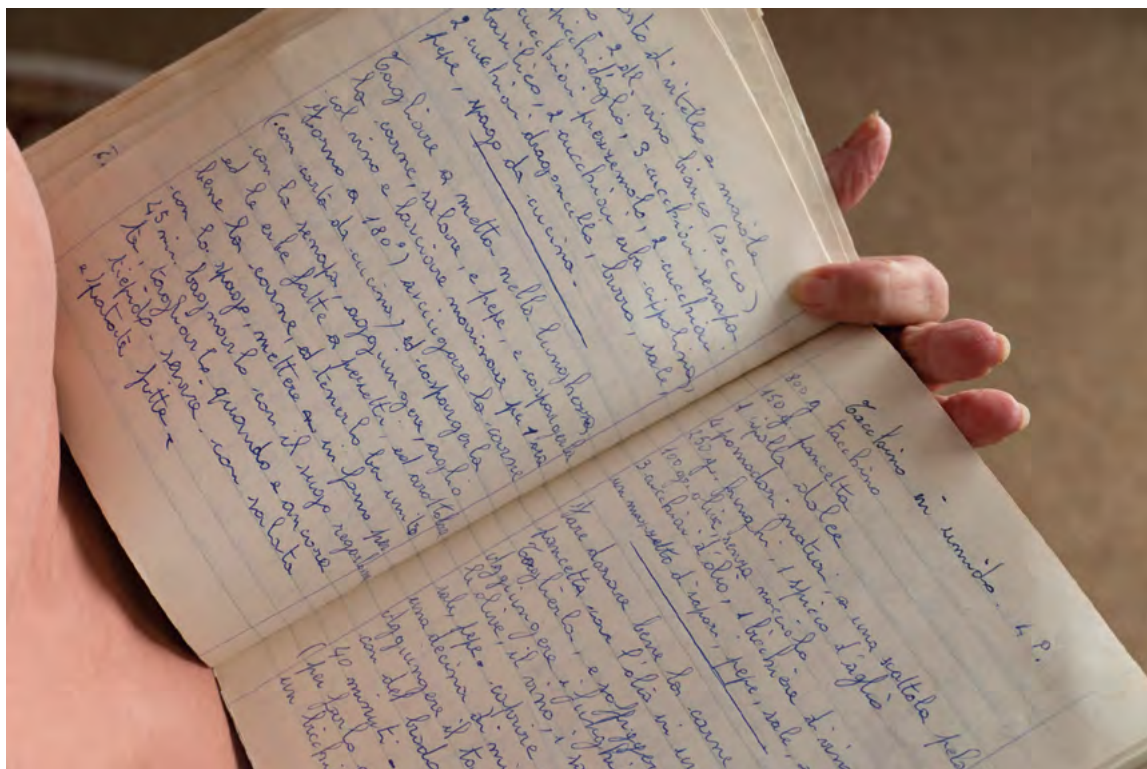 arrosto d'vitello o maiale
2 dl. vino bianco (secco)
spicchi d'aglio, 3 cucchiai senapa
cucchiai prezzemolo, 2 cucchiai
basilico, 2 cucchiai erba cipollina,
2 cucchiai dragoncello, burro, sale,
pepe, spago da cucina.
Tagliare a metta nella lunghezza
la carne, salare, e pepe, e cospargerla
col vino e lasciare marinare per 1 ora
(forno a 180°) asciugare la carne
(con carta da cucina) ed cospargerla
con la senapa, aggiungere, aglio
ed le erbe fatte a pezzetti, ed arrotolare
bene la carne, ed tenerlo ben unito
con lo spago, mettere in forno per
45 min bagnarlo con il sugo regolar
lo, tagliarlo quando e ancora
tiepido - servire con salata
e patate fritte
Tacchino in umido. 4 P.
800 g tacchino
150 g pancetta
1 cipolla dolce
4 pomodori maturi, o una scattola pela
150 g funghi, 1 spicio d'aglio
100 gr. olive senza nocciolo
3 cucchiai d'olio, 1 bicchiere d vino
un mazzetto d sapori, pepe, sale,
Fare dorare bene la carne
pancetta, con l'olio in un
Toglierla, e soffriggere
aggiungere i funghi
le olive, il vino, 1
sale, pepe - coprire
una decina di mi
aggiungere il to
con del brodo
40 minuti -
(per farlo
un bicchi